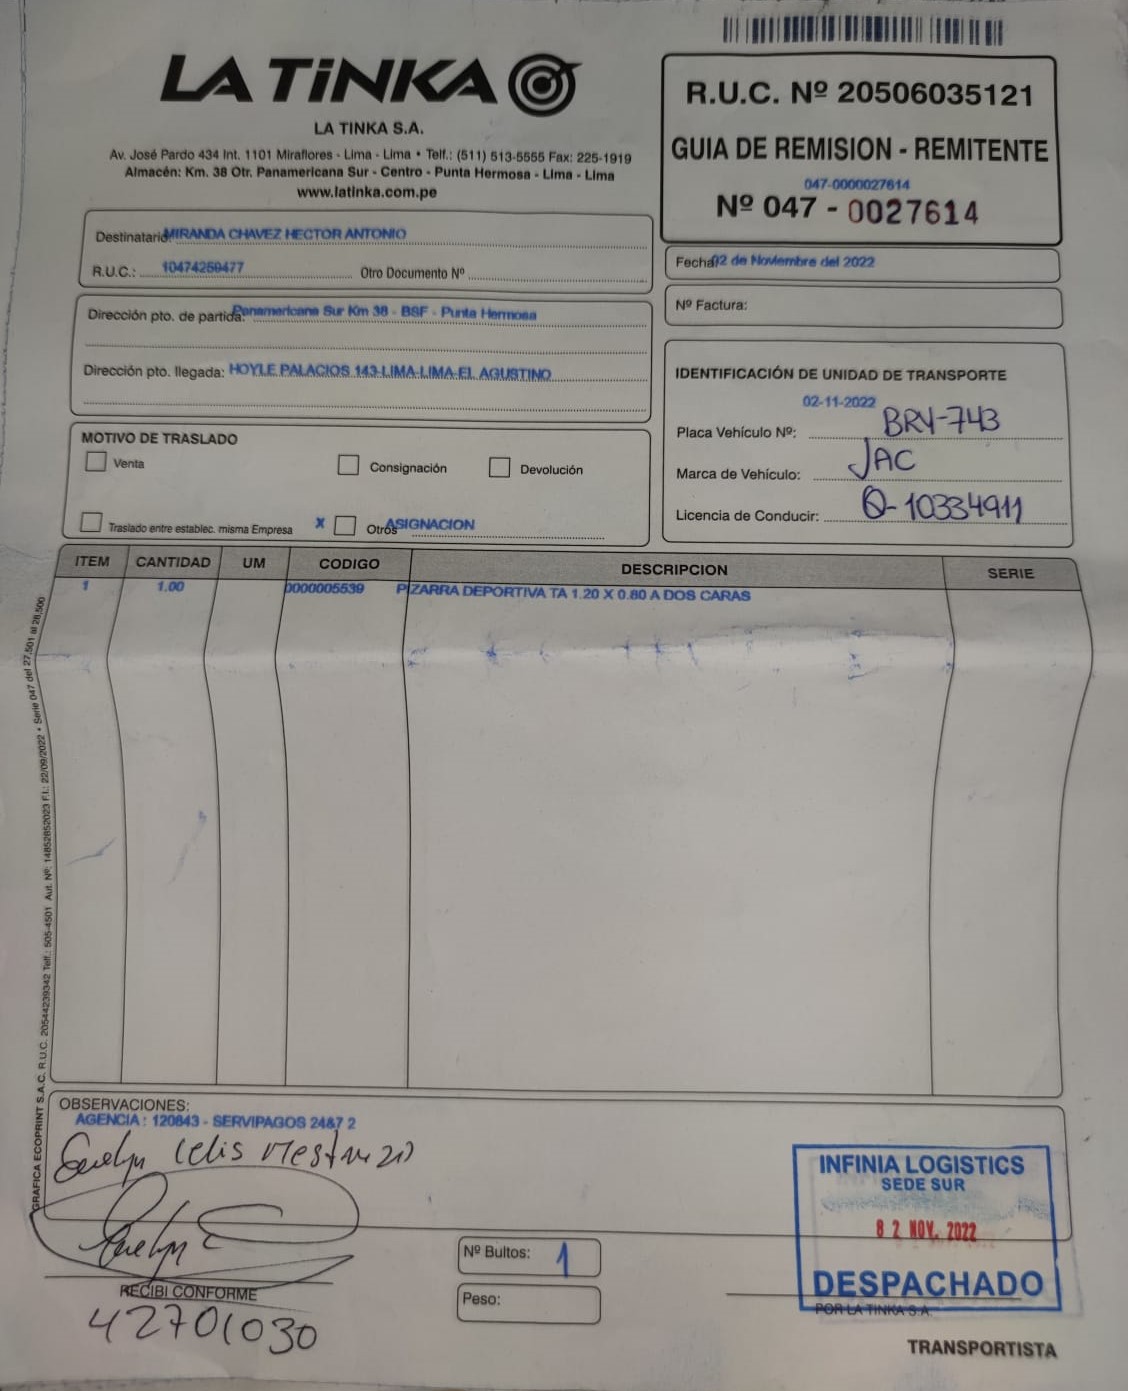 LA TiNKA
LA TINKA S.A.
Av. José Pardo 434 Int. 1101 Miraflores - Lima - Lima • Telf.: (511) 513-5555 Fax: 225-1919
Almacén: Km. 38 Otr. Panamericana Sur - Centro - Punta Hermosa - Lima - Lima
www.latinka.com.pe
R.U.C. Nº 20506035121
GUIA DE REMISION - REMITENTE
047-0000027614
Nº 047 - 0027614
Destinatario: MIRANDA CHAVEZ HECTOR ANTONIO
R.U.C.: 10474259477 Otro Documento Nº
Fecha: 02 de Noviembre del 2022
Nº Factura:
Dirección pto. de partida: Panamericana Sur Km 38 - BSF - Punta Hermosa
Dirección pto. llegada: HOYLE PALACIOS 143-LIMA-LIMA-EL AGUSTINO
IDENTIFICACIÓN DE UNIDAD DE TRANSPORTE
02-11-2022
Placa Vehículo Nº: BRY-743
Marca de Vehículo: JAC
Licencia de Conducir: Q-10334911
MOTIVO DE TRASLADO
Venta Consignación Devolución
Traslado entre establec. misma Empresa X Otros ASIGNACION
ITEM CANTIDAD UM CODIGO DESCRIPCION SERIE
1 1.00 0000005539 PIZARRA DEPORTIVA TA 1.20 X 0.80 A DOS CARAS
GRAFICA ECOPRINT S.A.C. R.U.C. 20544239342 Telf.: 505-4501 Aut. Nº: 14852852023 F.I.: 22/09/2022 • Serie 047 del 27,501 al 28,500
OBSERVACIONES:
AGENCIA : 120843 - SERVIPAGOS 24&7 2
Evelyn Celis
Evelyn C
RECIBI CONFORME
42701030
Nº Bultos: 1
Peso:
INFINIA LOGISTICS
SEDE SUR
02 NOV. 2022
DESPACHADO
POR LA TINKA S.A.
TRANSPORTISTA